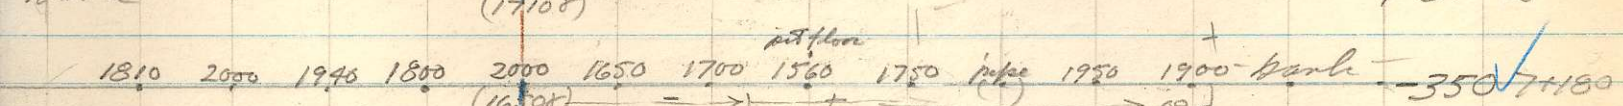 (17108)
pit floor
1810 2000 1940 1800 2000 1650 1700 1560 1750 pipe 1950 1900 - bank - -350 7+180